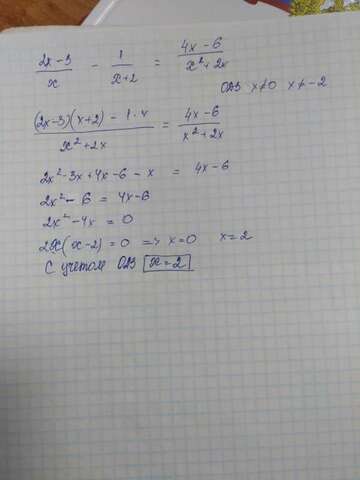 (2x-3)/x - 1/(x+2) = (4x-6)/(x²+2x)
ОДЗ x≠0 x≠-2
((2x-3)(x+2) - 1·x)/(x²+2x) = (4x-6)/(x²+2x)
2x²-3x+4x-6-x = 4x-6
2x²-6 = 4x-6
2x²-4x = 0
2x(x-2)=0 => x=0 x=2
С учетом ОДЗ x=2